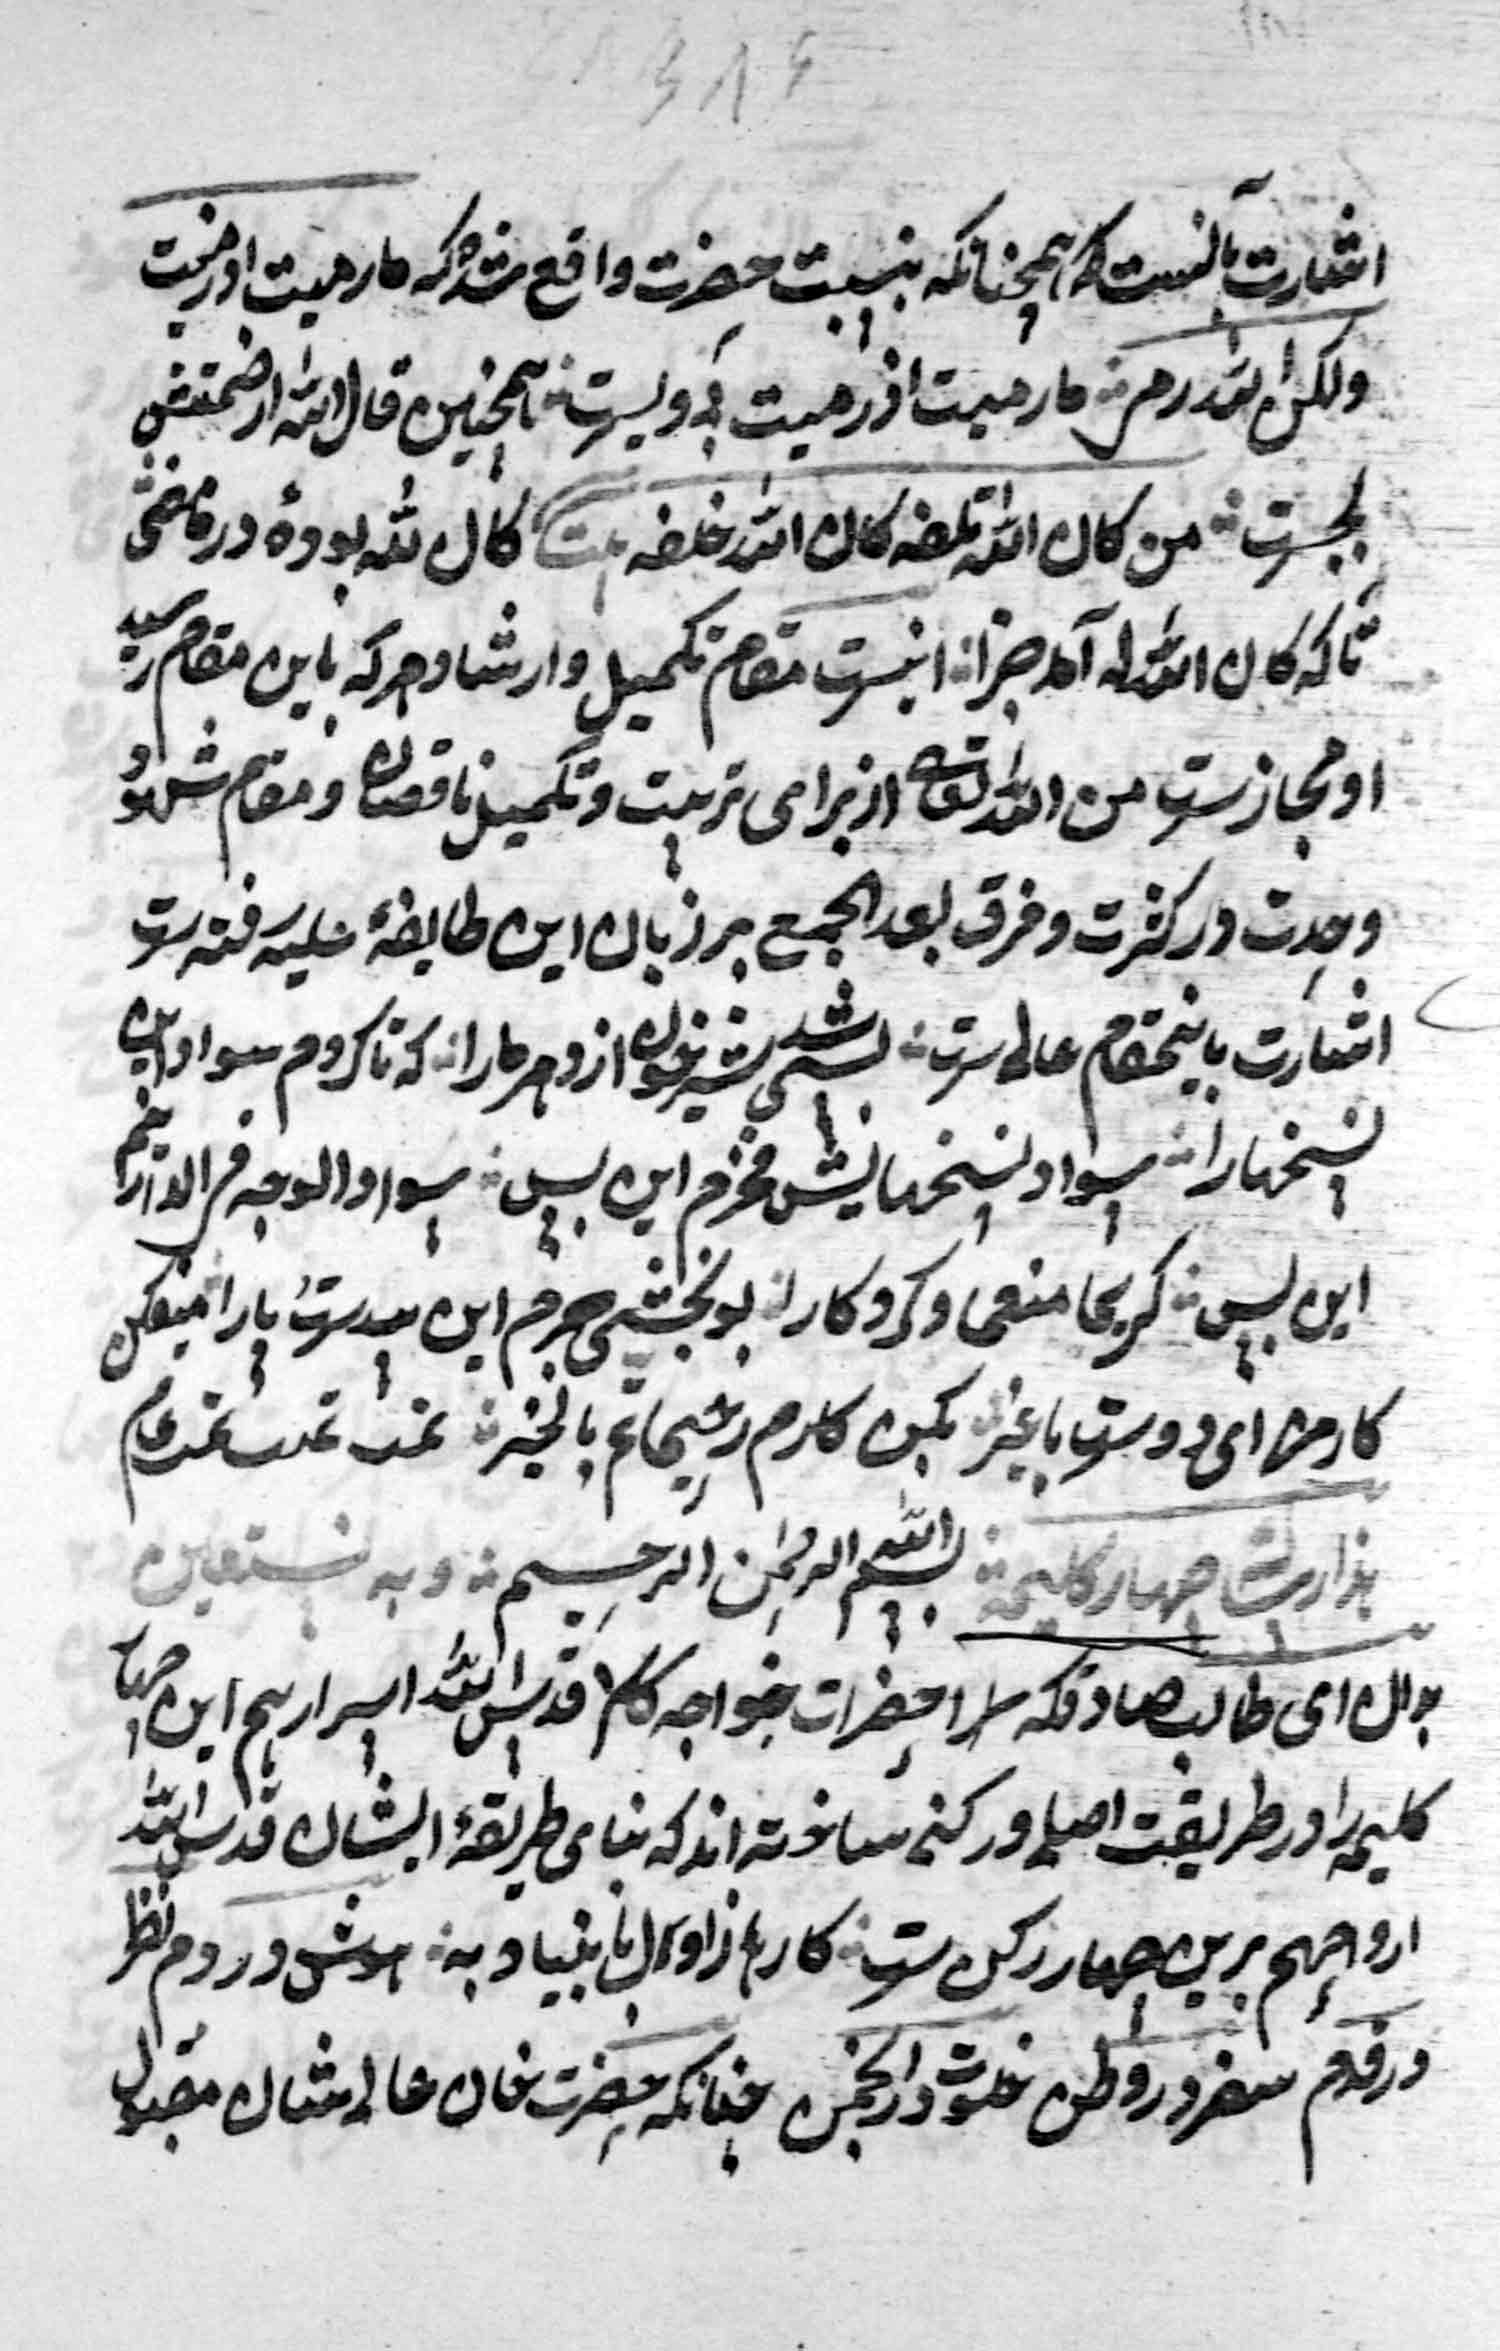 اشارت بآنست که همچنانکه بنسبت حضرت واقع شده که ما رمیت اذ رمیت
ولکن الله رمی ما رمیت اذ رمیت بی ویست همچنین قال الله از صمتش
بجست من کان لله تلفه کان الله خلفه کان لله بوده در ما مضی
تا که کان الله له آمد جزا اینست مقام تکمیل و ارشاد هر که باین مقام رسید
او مجازست من الله تعالی از برای تربیت و تکمیل ناقصان و مقام شهود
وحدت در کثرت و فرق بعد الجمع بر زبان این طایفهٔ علیه رفته است
اشارت باینمقام عالی ست بسی شد شیر خون از دهر ما را که تا کردم سواد این
نسخها را سواد نسخهایش فخرم این بس سواد الوجه فی الدارینم
این بس کریما منعما و کردکارا بو بخشی جرم این بیدست پا را میفکن
کار من ای دوست با غیر بکن کلام رشیحاتم بالخیر تمت تمت تمت تمام
هذا رسالت چهار کلیمه بسم الله الرحمن الرحیم و به نستعین
بدان ای طالب صادق که سرا حضرات خواجه کان قدس الله اسرارهم این چهار
کلیمه را در طریقت اصلی و رکنی ساخته اند که بنای طریقهٔ ایشان قدس الله
ارواحهم برین چهار رکن ست کارها ز اول با بنیاد به هوش در دم نظر
در قدم سفر در وطن خلوت در انجمن چنانکه حضرت خان عالی مشان مقبول